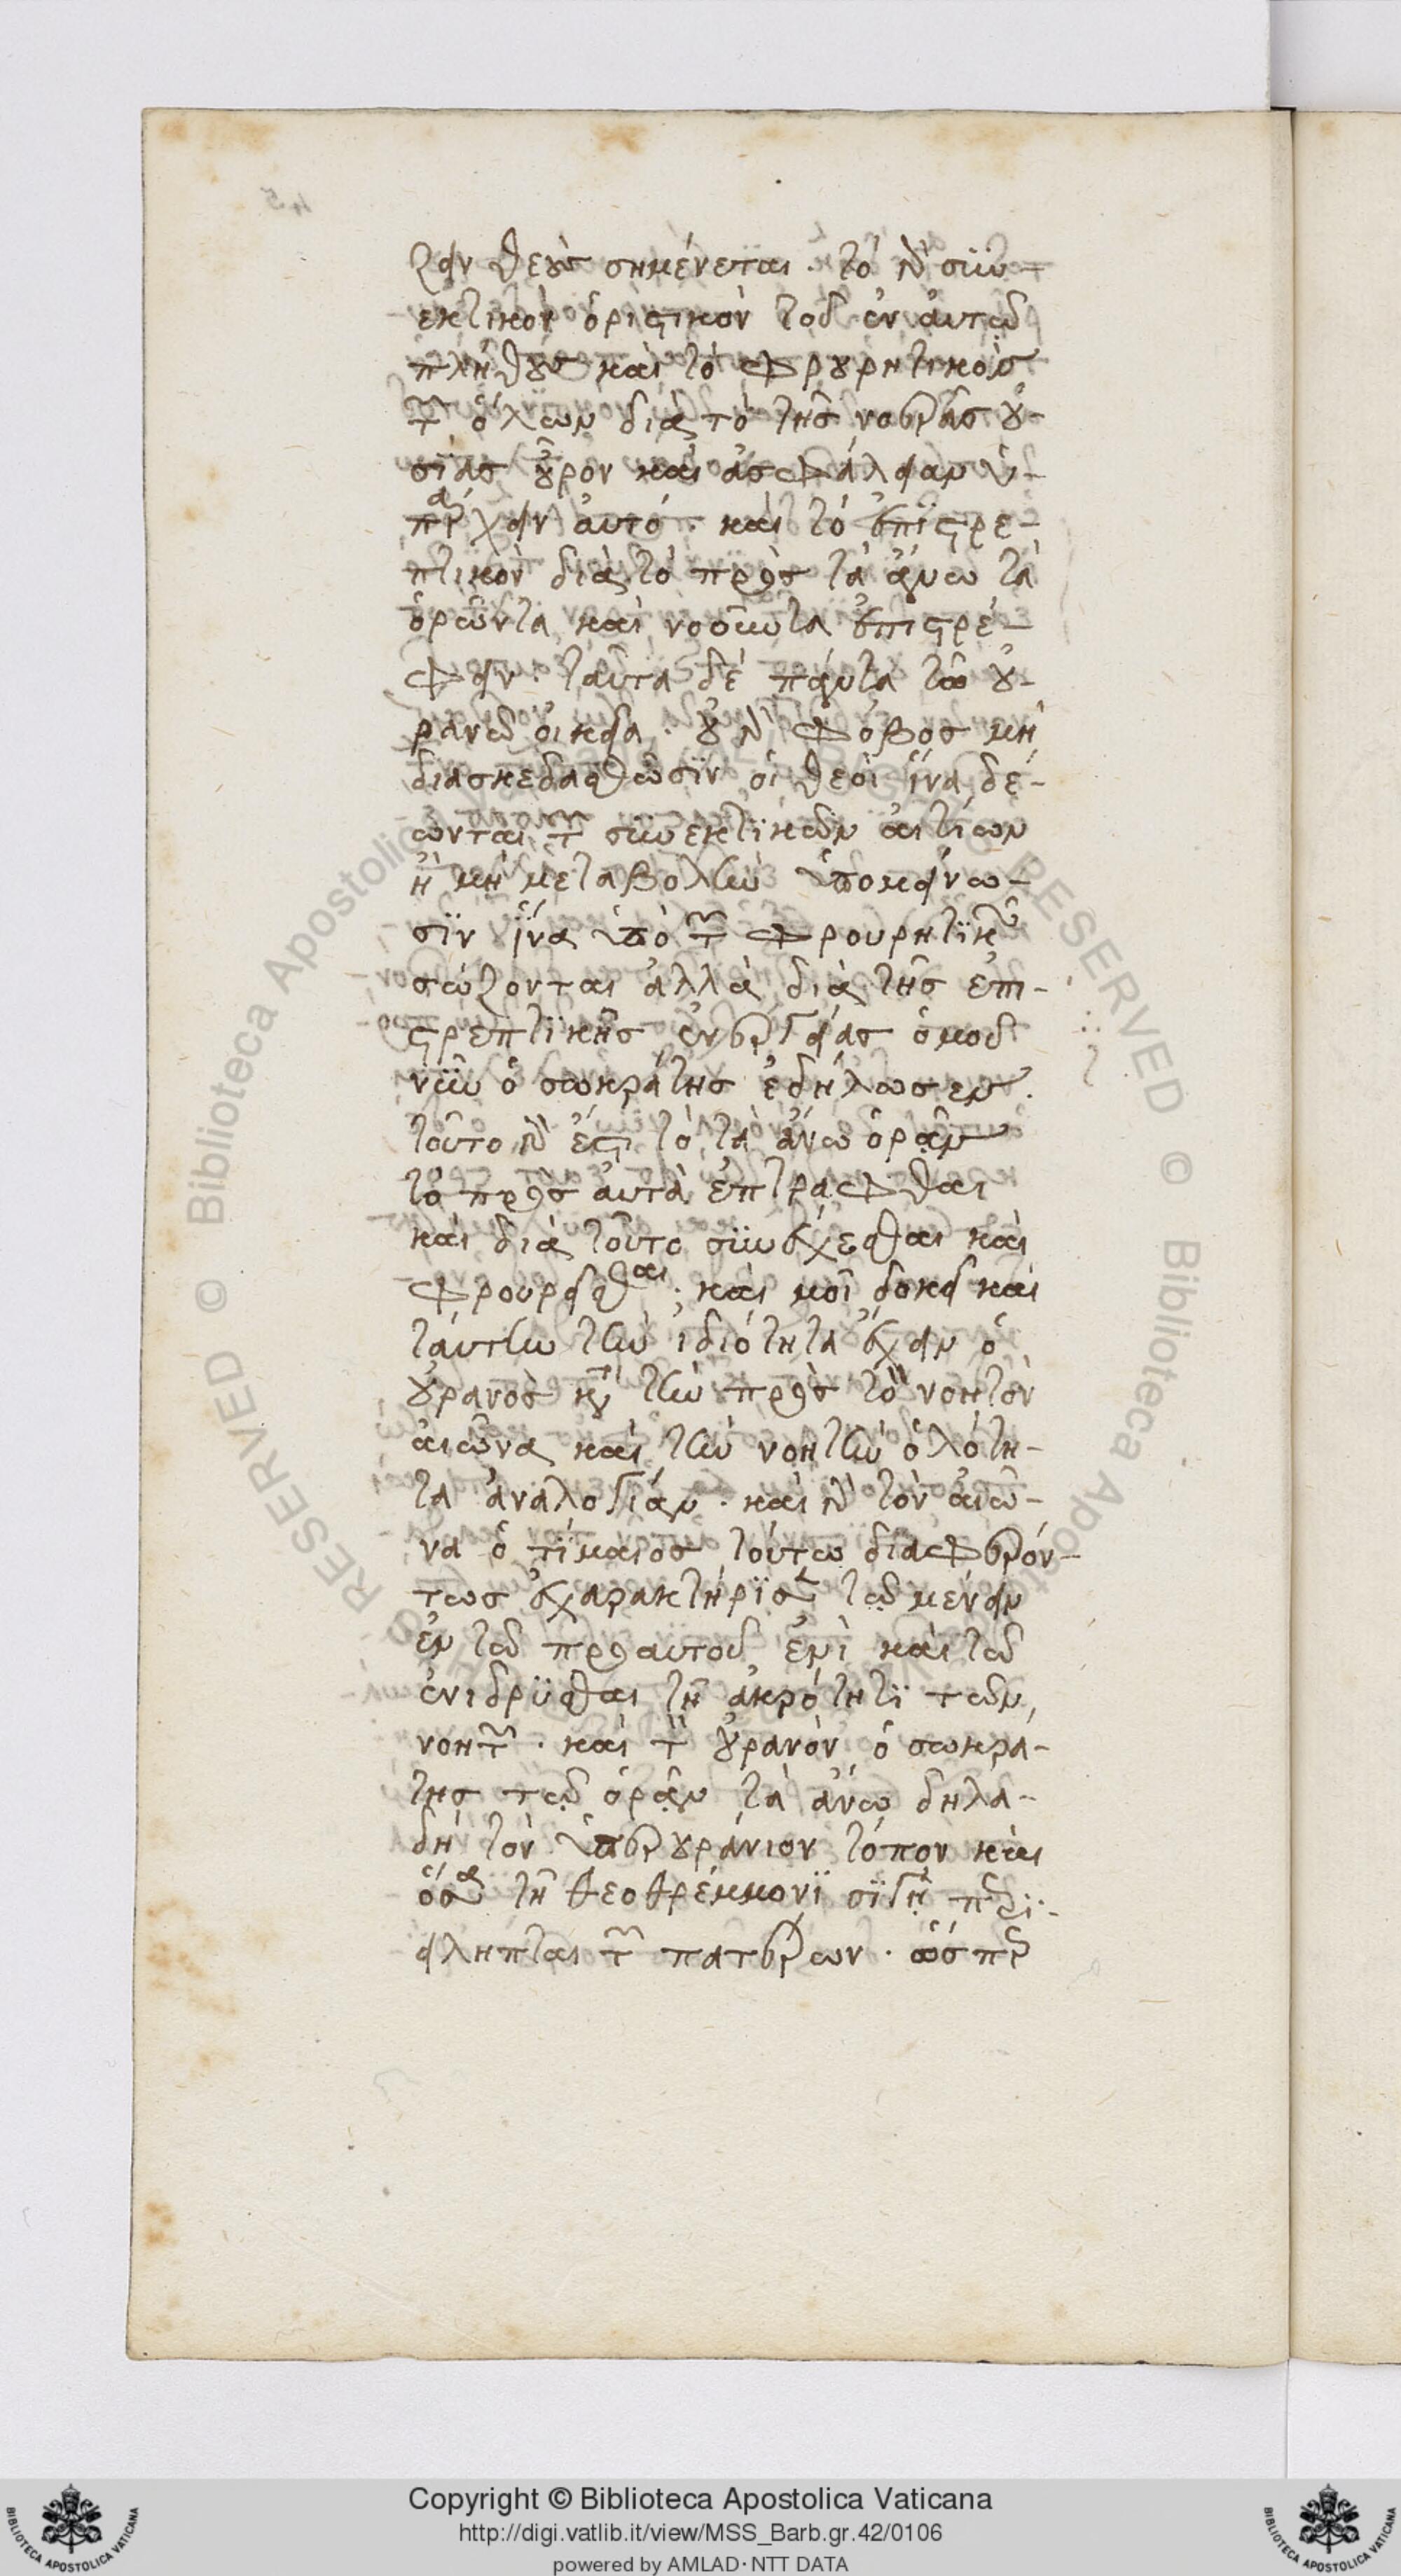 ζειν θεοὺς σημένεται. τὸ γὰρ συν-
εκτικὸν ὁριστικὸν τοῦ ἐν αὐτῶ
πλήθους καὶ τὸ φρουρητικὸν
τῶν ὅλων διὰ τὸ τῆς νοερᾶς οὐ-
σίας οὖρον καὶ ἀσφάλειαν ὑ-
πάρχειν αὐτό. καὶ τὸ ἐπιστρε-
πτικὸν διὰ τὸ πρὸς τὰ ἄνω τὰ
ὁρῶντα καὶ νοοῦντα ἐπιστρέ-
φειν. ταῦτα δὲ πάντα τῶ οὐ-
ρανῶ οἰκεῖα. οὐ γὰρ φόβος μὴ
διασκεδασθῶσιν οἱ θεοὶ ἵνα δέ-
ωνται τῶν συνεκτικῶν αἰτίων
ἢ μὴ μεταβολὴν ὑπομείνω-
σιν ἵνα ὑπὸ τῶν φρουρητικῶν
σώζονται ἀλλὰ διὰ τῆς ἐπι-
στρεπτικῆς ἐνεργείας ὁμοῦ
νῦν ὁ σωκράτης ἐδήλωσεν.
τοῦτο γὰρ ἐστι τὸ τὰ ἄνω ὁρᾶν
τὸ πρὸς αὐτὰ ἐπτράφθαι
καὶ διὰ τοῦτο συνέχεσθαι καὶ
φρουρεῖσθαι. καὶ μοι δοκεῖ καὶ
ταύτην τὴν ἰδιότητα ἔχειν ὁ
οὐρανὸς κατὰ τὴν πρὸς τὸν νοητὸν
αἰῶνα καὶ τὴν νοητὴν ὁλότη-
τα ἀναλογίαν. καὶ γὰρ τὸν αἰῶ-
να ὁ τίμαιος τούτω διαφερόν-
τως ἐχαρακτήρισε τῶ μένειν
ἐν τῶ πρὸ αὐτοῦ ἑνὶ καὶ τῶ
ἐνιδρῦσθαι τῆ ἀκρότητι τῶν
νοητῶν. καὶ τὸν οὐρανὸν ὁ σωκρά-
της τῶ ὁρᾶν τὰ ἄνω δηλα-
δὴ τὸν ὑπερουράνιον τόπον καὶ
ὅσα τῆ θεοθρέμμονι σιγῆ περι-
είληπται τῶν πατέρων. ὥσπερ
Copyright © Biblioteca Apostolica Vaticana
http://digi.vatlib.it/view/MSS_Barb.gr.42/0106
powered by AMLAD · NTT DATA